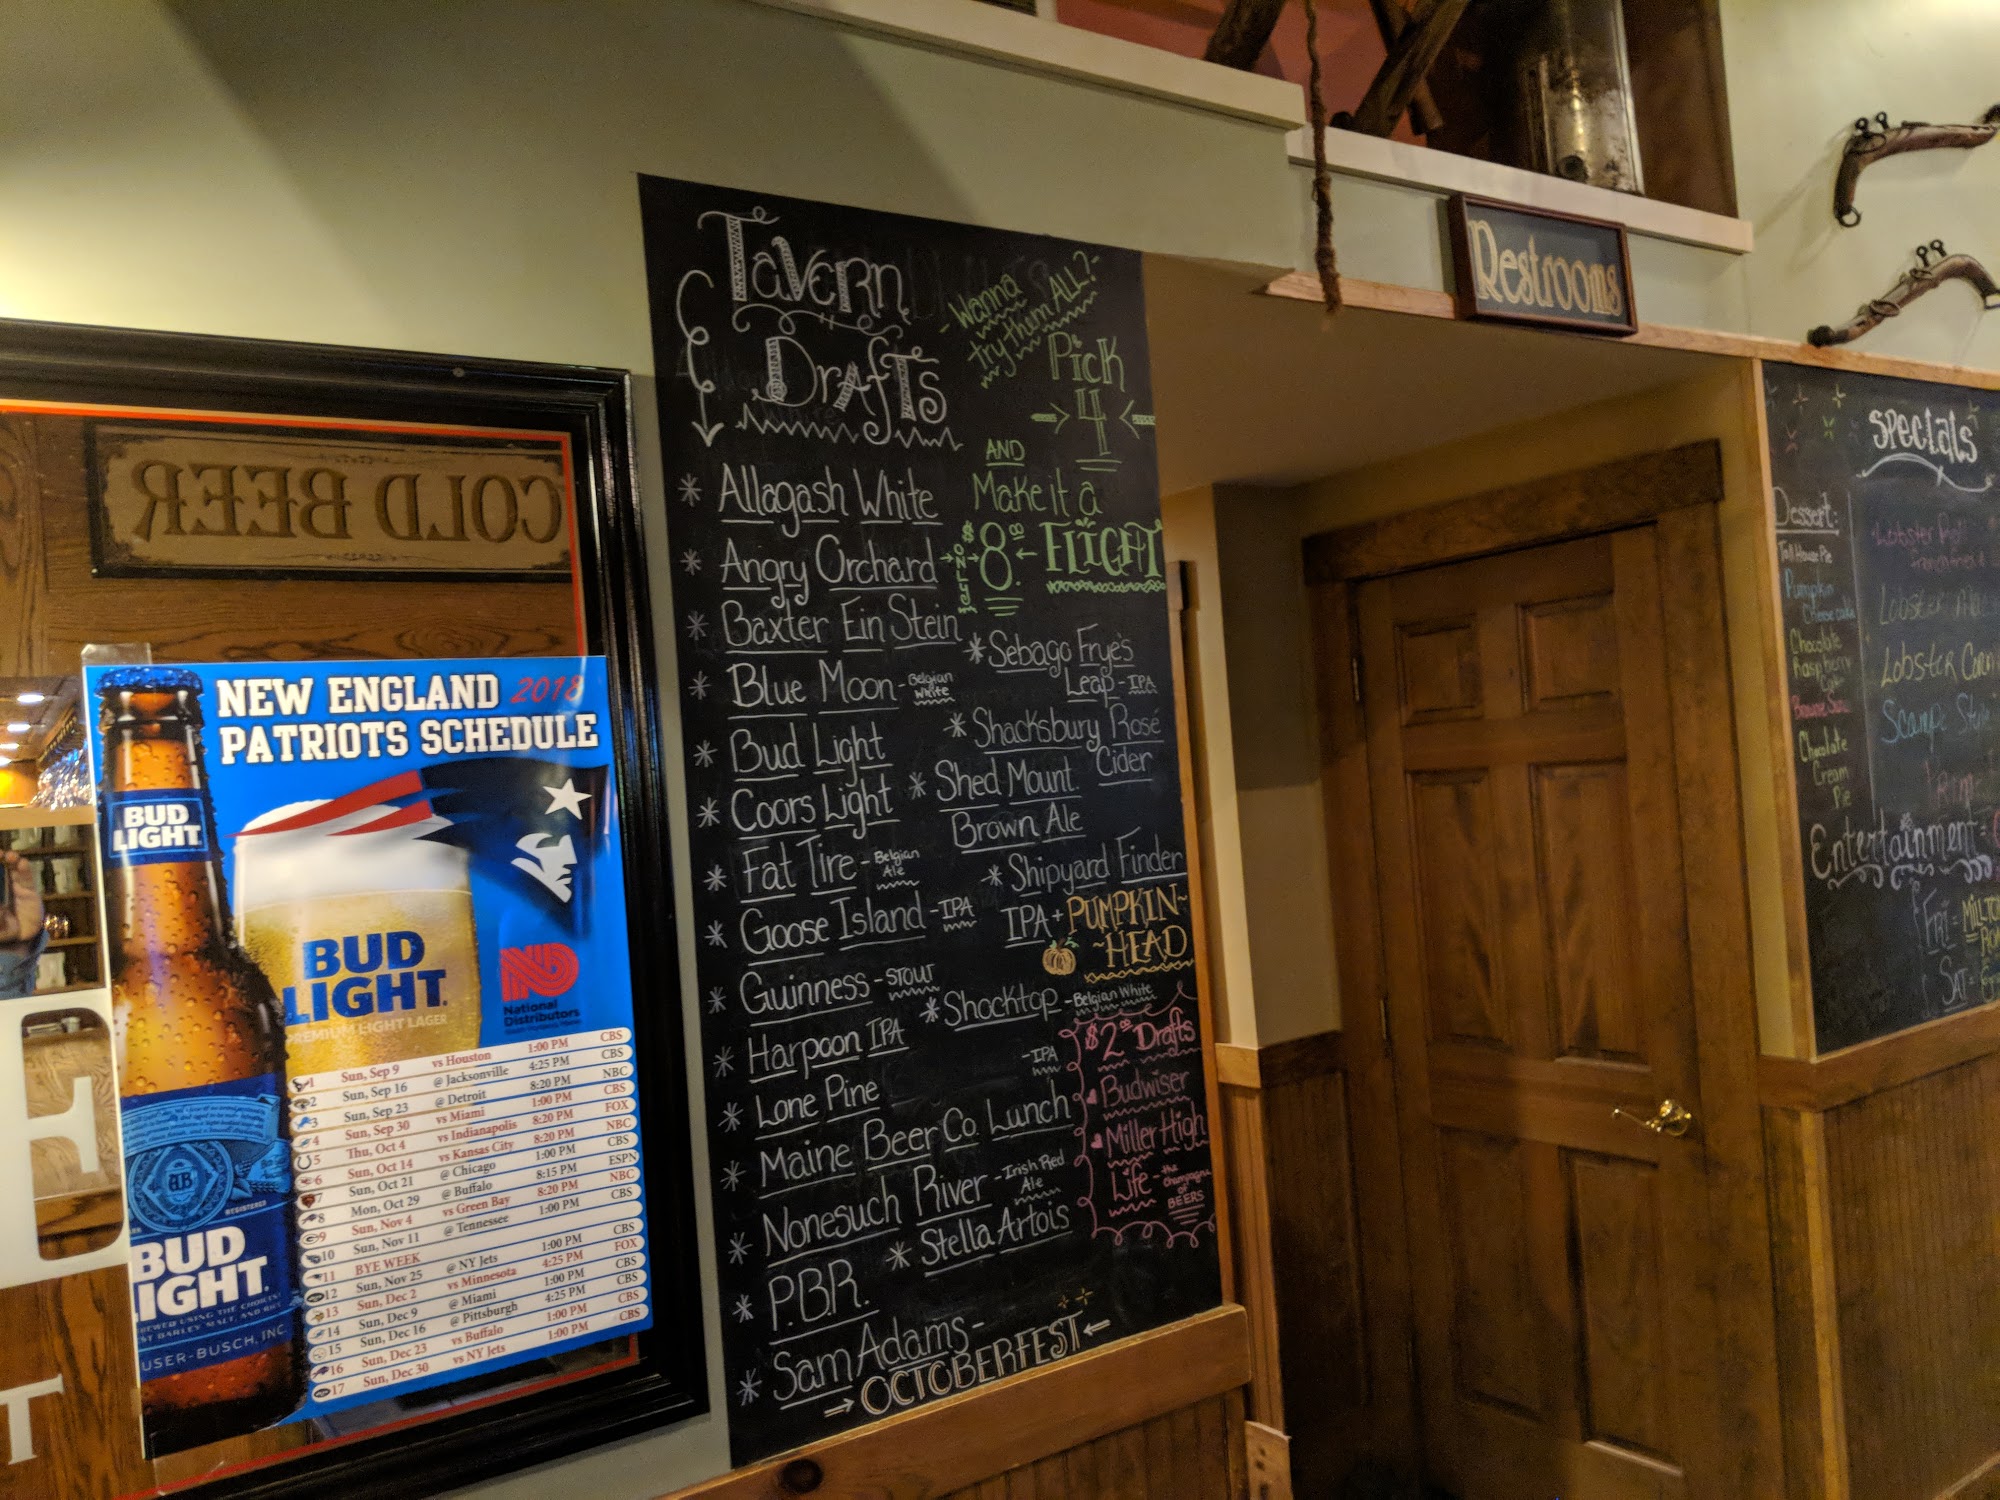 COLD BEER
NEW ENGLAND 2018
PATRIOTS SCHEDULE
BUD
LIGHT
BUD
LIGHT
PREMIUM LIGHT LAGER
National
Distributors
BUD
LIGHT
1 Sun, Sep 9 vs Houston 1:00 PM CBS
2 Sun, Sep 16 @ Jacksonville 4:25 PM CBS
3 Sun, Sep 23 @ Detroit 8:20 PM NBC
4 Sun, Sep 30 vs Miami 1:00 PM CBS
5 Thu, Oct 4 vs Indianapolis 8:20 PM FOX
6 Sun, Oct 14 vs Kansas City 8:20 PM NBC
7 Sun, Oct 21 @ Chicago 1:00 PM CBS
8 Mon, Oct 29 @ Buffalo 8:15 PM ESPN
9 Sun, Nov 4 vs Green Bay 8:20 PM NBC
10 Sun, Nov 11 @ Tennessee 1:00 PM CBS
11 BYE WEEK
12 Sun, Nov 25 @ NY Jets 1:00 PM CBS
13 Sun, Dec 2 vs Minnesota 4:25 PM FOX
14 Sun, Dec 9 @ Miami 1:00 PM CBS
15 Sun, Dec 16 @ Pittsburgh 4:25 PM CBS
16 Sun, Dec 23 vs Buffalo 1:00 PM CBS
17 Sun, Dec 30 vs NY Jets 1:00 PM CBS
USER-BUSCH, INC.
E
T
Tavern
Drafts
* Allagash White
* Angry Orchard
* Baxter Ein Stein
* Blue Moon - Belgian White
* Bud Light
* Coors Light
* Fat Tire - Belgian Ale
* Goose Island - IPA
* Guinness - STOUT
* Harpoon IPA
* Lone Pine - IPA
* Maine Beer Co. Lunch
* Nonesuch River - Irish Red Ale
* P.B.R.
* Sam Adams -
OCTOBERFEST
- Wanna
try them ALL? -
Pick
4
AND
Make it a
ONLY $8.00 FLIGHT
* Sebago Frye's
Leap - IPA
* Shacksbury Rosé
Cider
* Shed Mount.
Brown Ale
* Shipyard Finder
IPA + PUMPKIN-
-HEAD
* Shocktop - Belgian White
* Stella Artois
$2.00 Drafts
Budwiser
Miller High
Life - the champagne of BEERS
Restrooms
Specials
Dessert:
Toll House Pie
Pumpkin
Cheesecake
Chocolate
Raspberry
Chocolate
Cream
Pie
Lobster Roll
Lobster
Lobster
Entertainment =
Fri =
Sat =